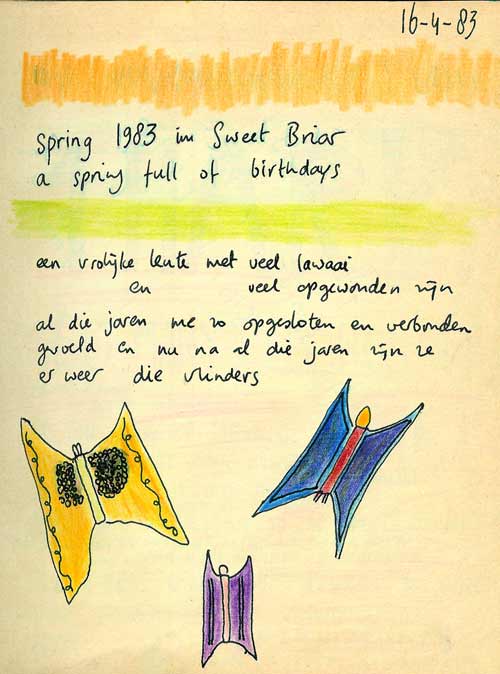 16-4-83
Spring 1983 in Sweet Briar
a spring full of birthdays
een vrolijke lente met veel lawaai
en veel opgewonden zijn
al die jaren me zo opgesloten en verbonden
gevoeld en nu na al die jaren zijn ze
er weer die vlinders